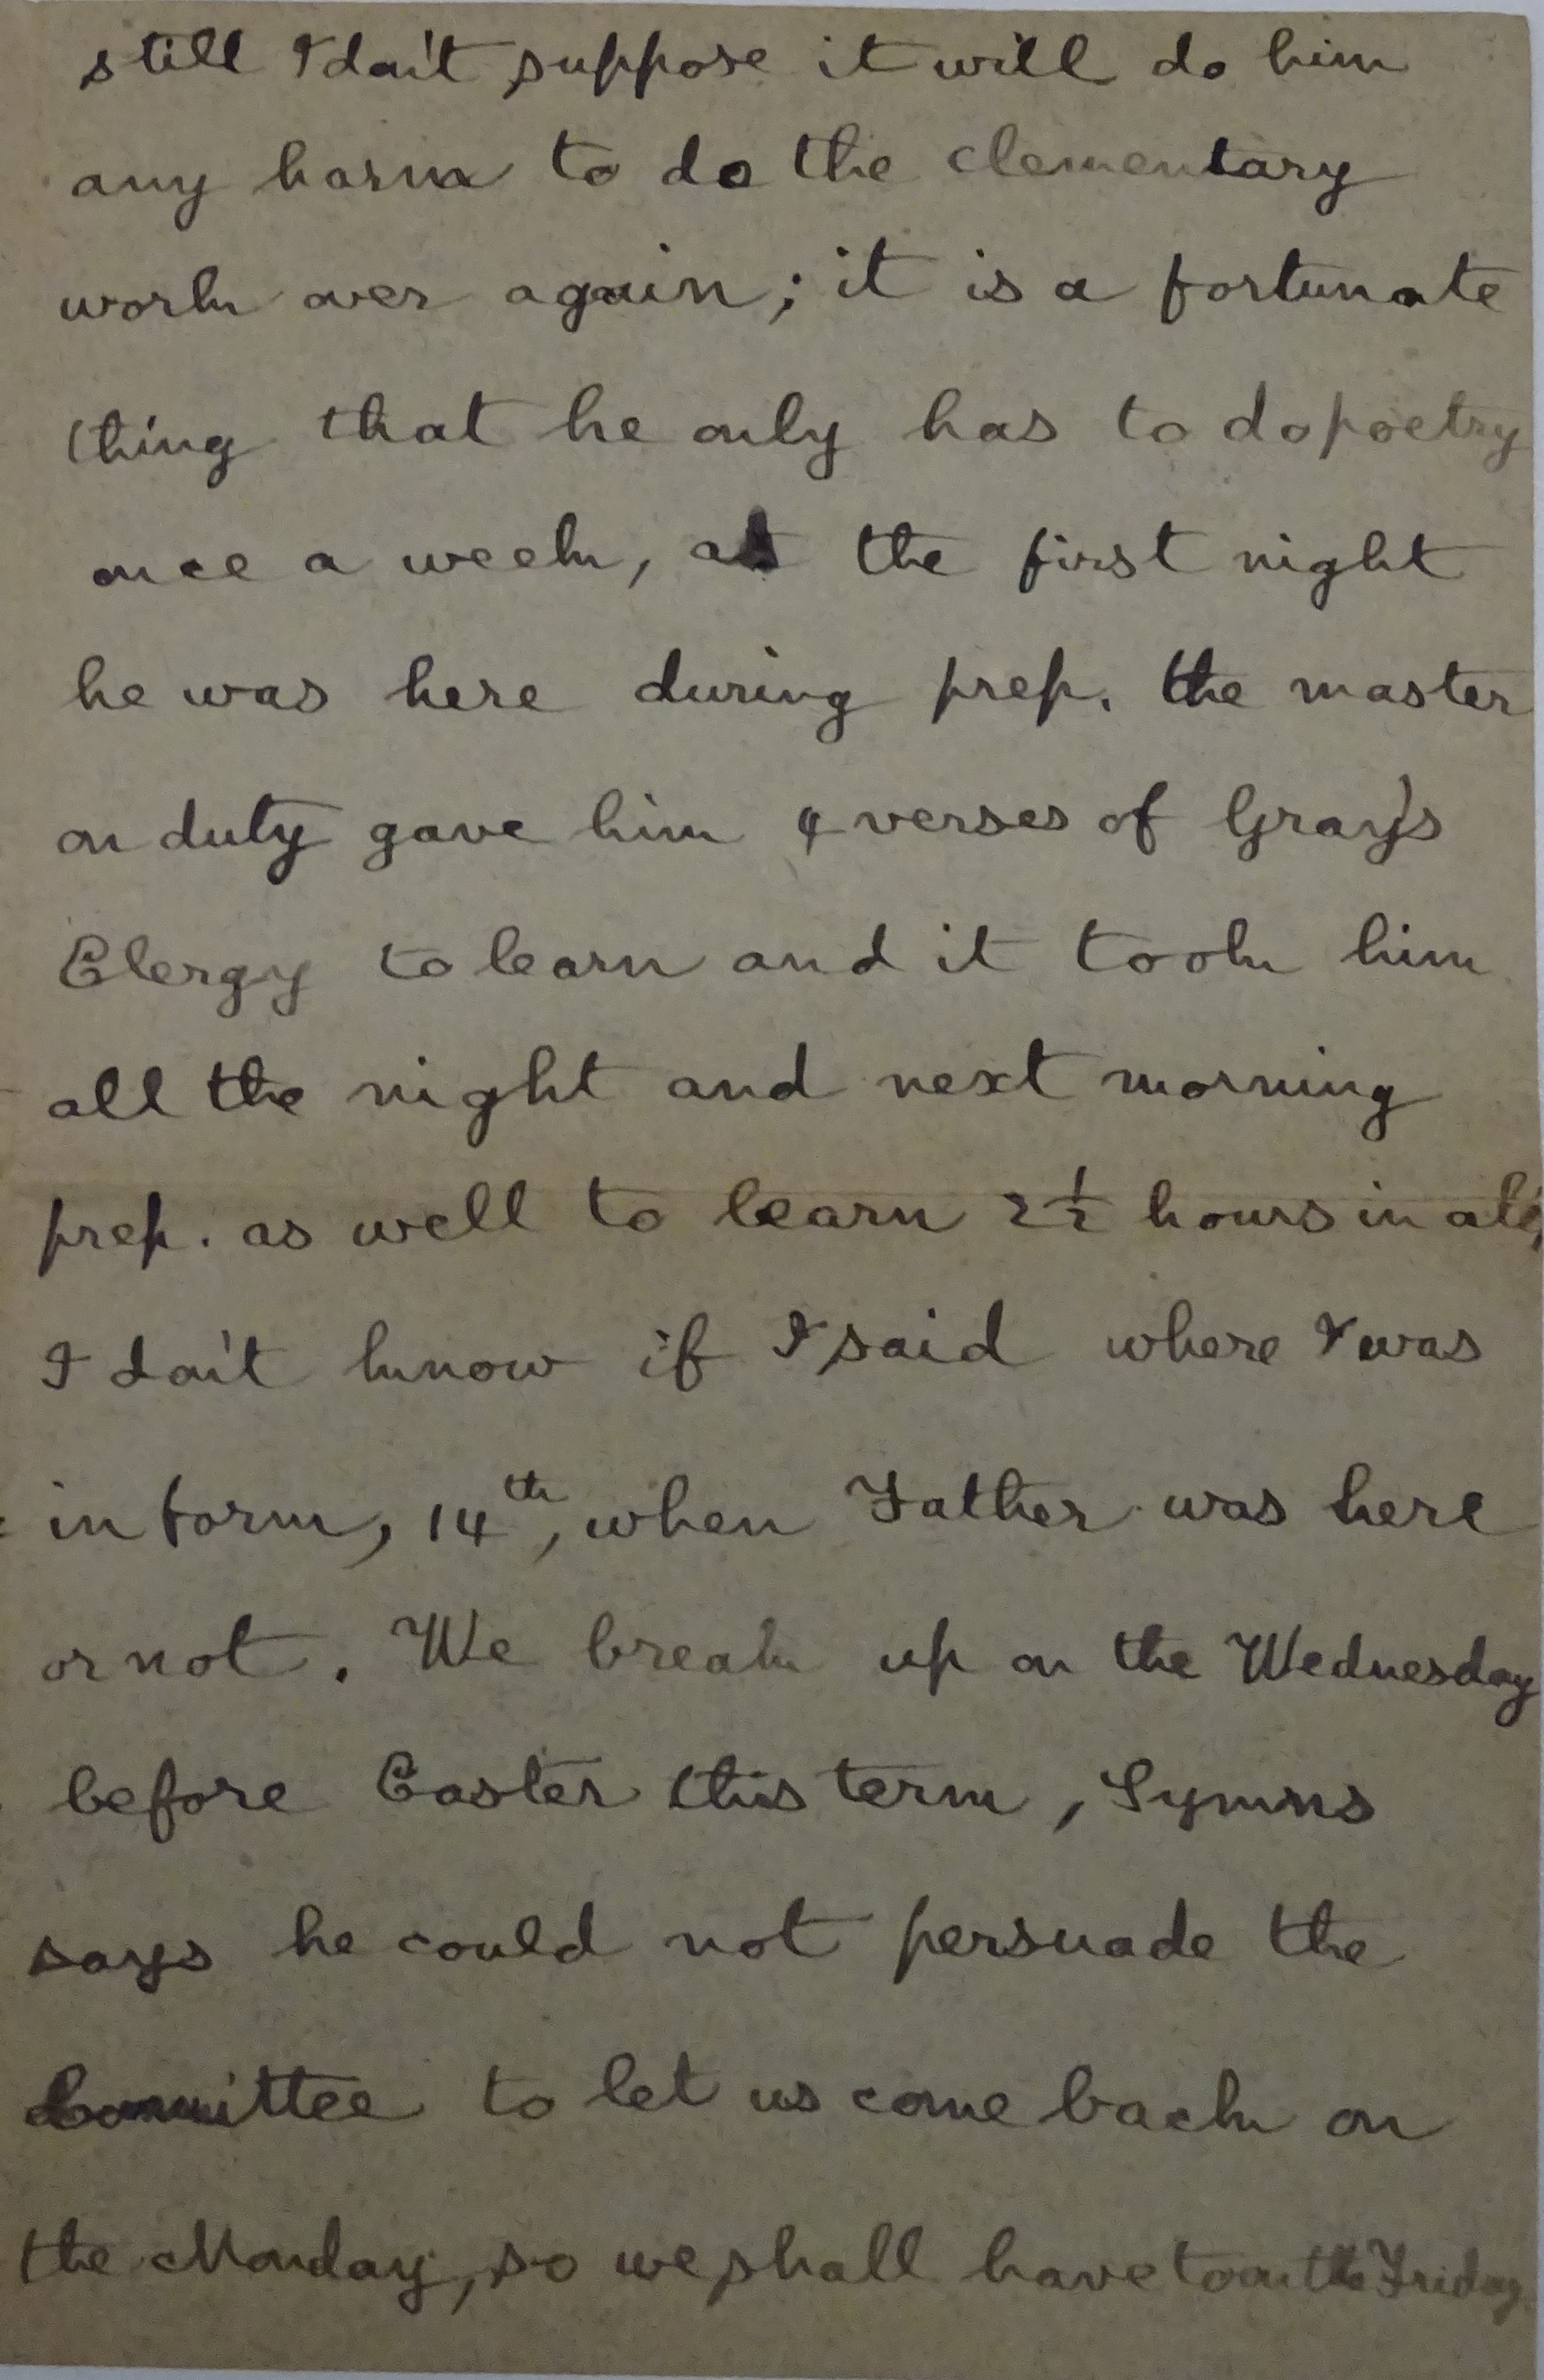 still I don't suppose it will do him
any harm to do the elementary
work over again; it is a fortunate
thing that he only has to do poetry
once a week, as the first night
he was here during prep. the master
on duty gave him 4 verses of Gray's
Elergy to learn and it took him
all the night and next morning
prep. as well to learn 2½ hours in all,
I don't know if I said where I was
in form, 14th, when Father was here
or not. We break up on the Wednesday
before Easter this term, Symns
says he could not persuade the
Committee to let us come back on
the Monday, so we shall have to on the Friday